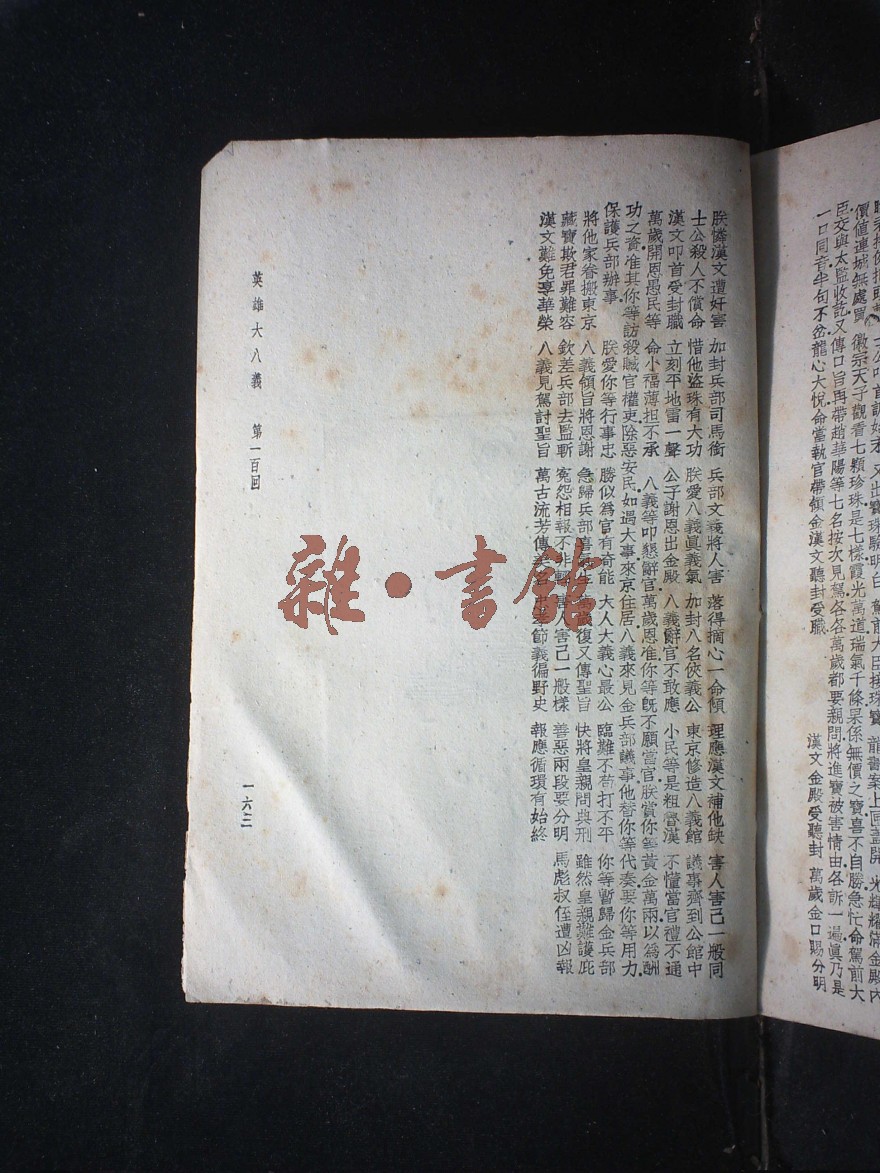 士公叩首訴始末 又出寶珠驗明白 駕前大臣接珠寶 龍書案上同盖開 光輝耀滿金殿內
價值連城無處買 徽宗天子觀看七顆珍珠是七樣霞光萬道瑞氣千條果係無價之寶喜不自勝急忙命駕前大
臣交與太監收訖又傳口旨再帶趙華陽等七名按次見駕各各萬歲都要親問將進寶被害情由各訴一遍眞乃是
一口同音半句不岔龍心大悅命當執官帶領金漢文聽封受職 漢文金殿受聽封 萬歲金口賜分明
朕憐漢文遭奸害 加封兵部司馬銜 兵部文義將人害 落得摘心一命傾 理應漢文補他缺 害人害己一般同
士公殺人不償命 惜他盜珠有大功 朕愛八義眞義氣 加封八名俠義公 東京修造八義館 議事齊到公館中
漢文叩首受封職 立刻平地雷一聲 公子謝恩出金殿 八義辭官不敢應 小民等是粗魯漢 不懂當官禮不通
萬歲開恩愚民等 命小福薄担不承 八義等叩懇辭官萬歲恩准你等旣不願當官朕賞你等黃金萬兩以爲酬
功之資准其你等訪殺贓官權吏除惡安民如遇大事來京住居八義來見金兵部議事他替你等代奏要你等用力
保護兵部辦事 朕愛你等行事忠 勝似爲官有奇能 大人大義心最公 臨難不苟打不平 你等暫歸金兵部
將他家眷搬東京 八義領旨將恩謝 急歸兵部喜 萬歲復又傳聖旨 快將皇親問典刑 雖然皇親難護庇
藏寶欺君罪難容 欽差兵部去監斬 冤怨相報不非輕 害人害己一般樣 善惡兩段要分明 馬彪叔侄遭凶報
漢文難免享華榮 八義見駕討聖旨 萬古流芳傳 名 節義徧野史 報應循環有始終
英雄大八義 第一百回
一六三
雜·書館